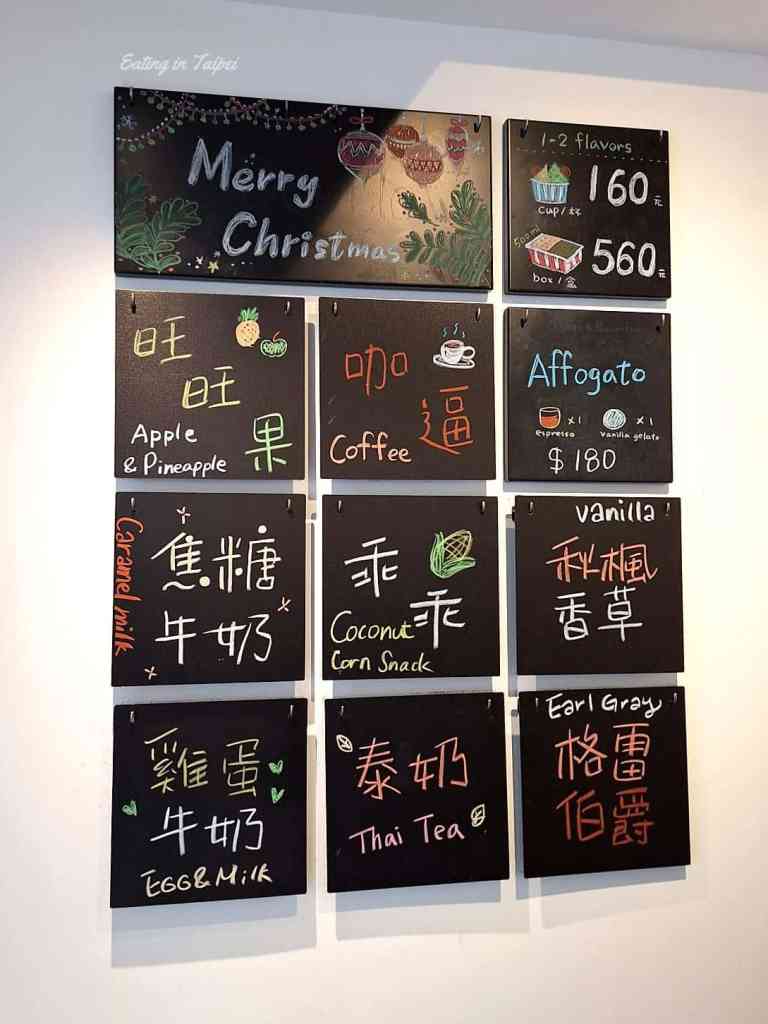 Eating in Taipei
Merry
Christmas
1-2 flavors
160元
cup/杯
500ml
560元
box/盒
旺
旺
果
Apple
& Pineapple
咖
逼
Coffee
Affogato
x1
x1
espresso
vanilla gelato
$180
Caramel milk
焦糖
牛奶
乖
乖
Coconut
Corn Snack
vanilla
秋楓
香草
雞蛋
牛奶
EGG&Milk
泰奶
Thai Tea
Earl Gray
格雷
伯爵